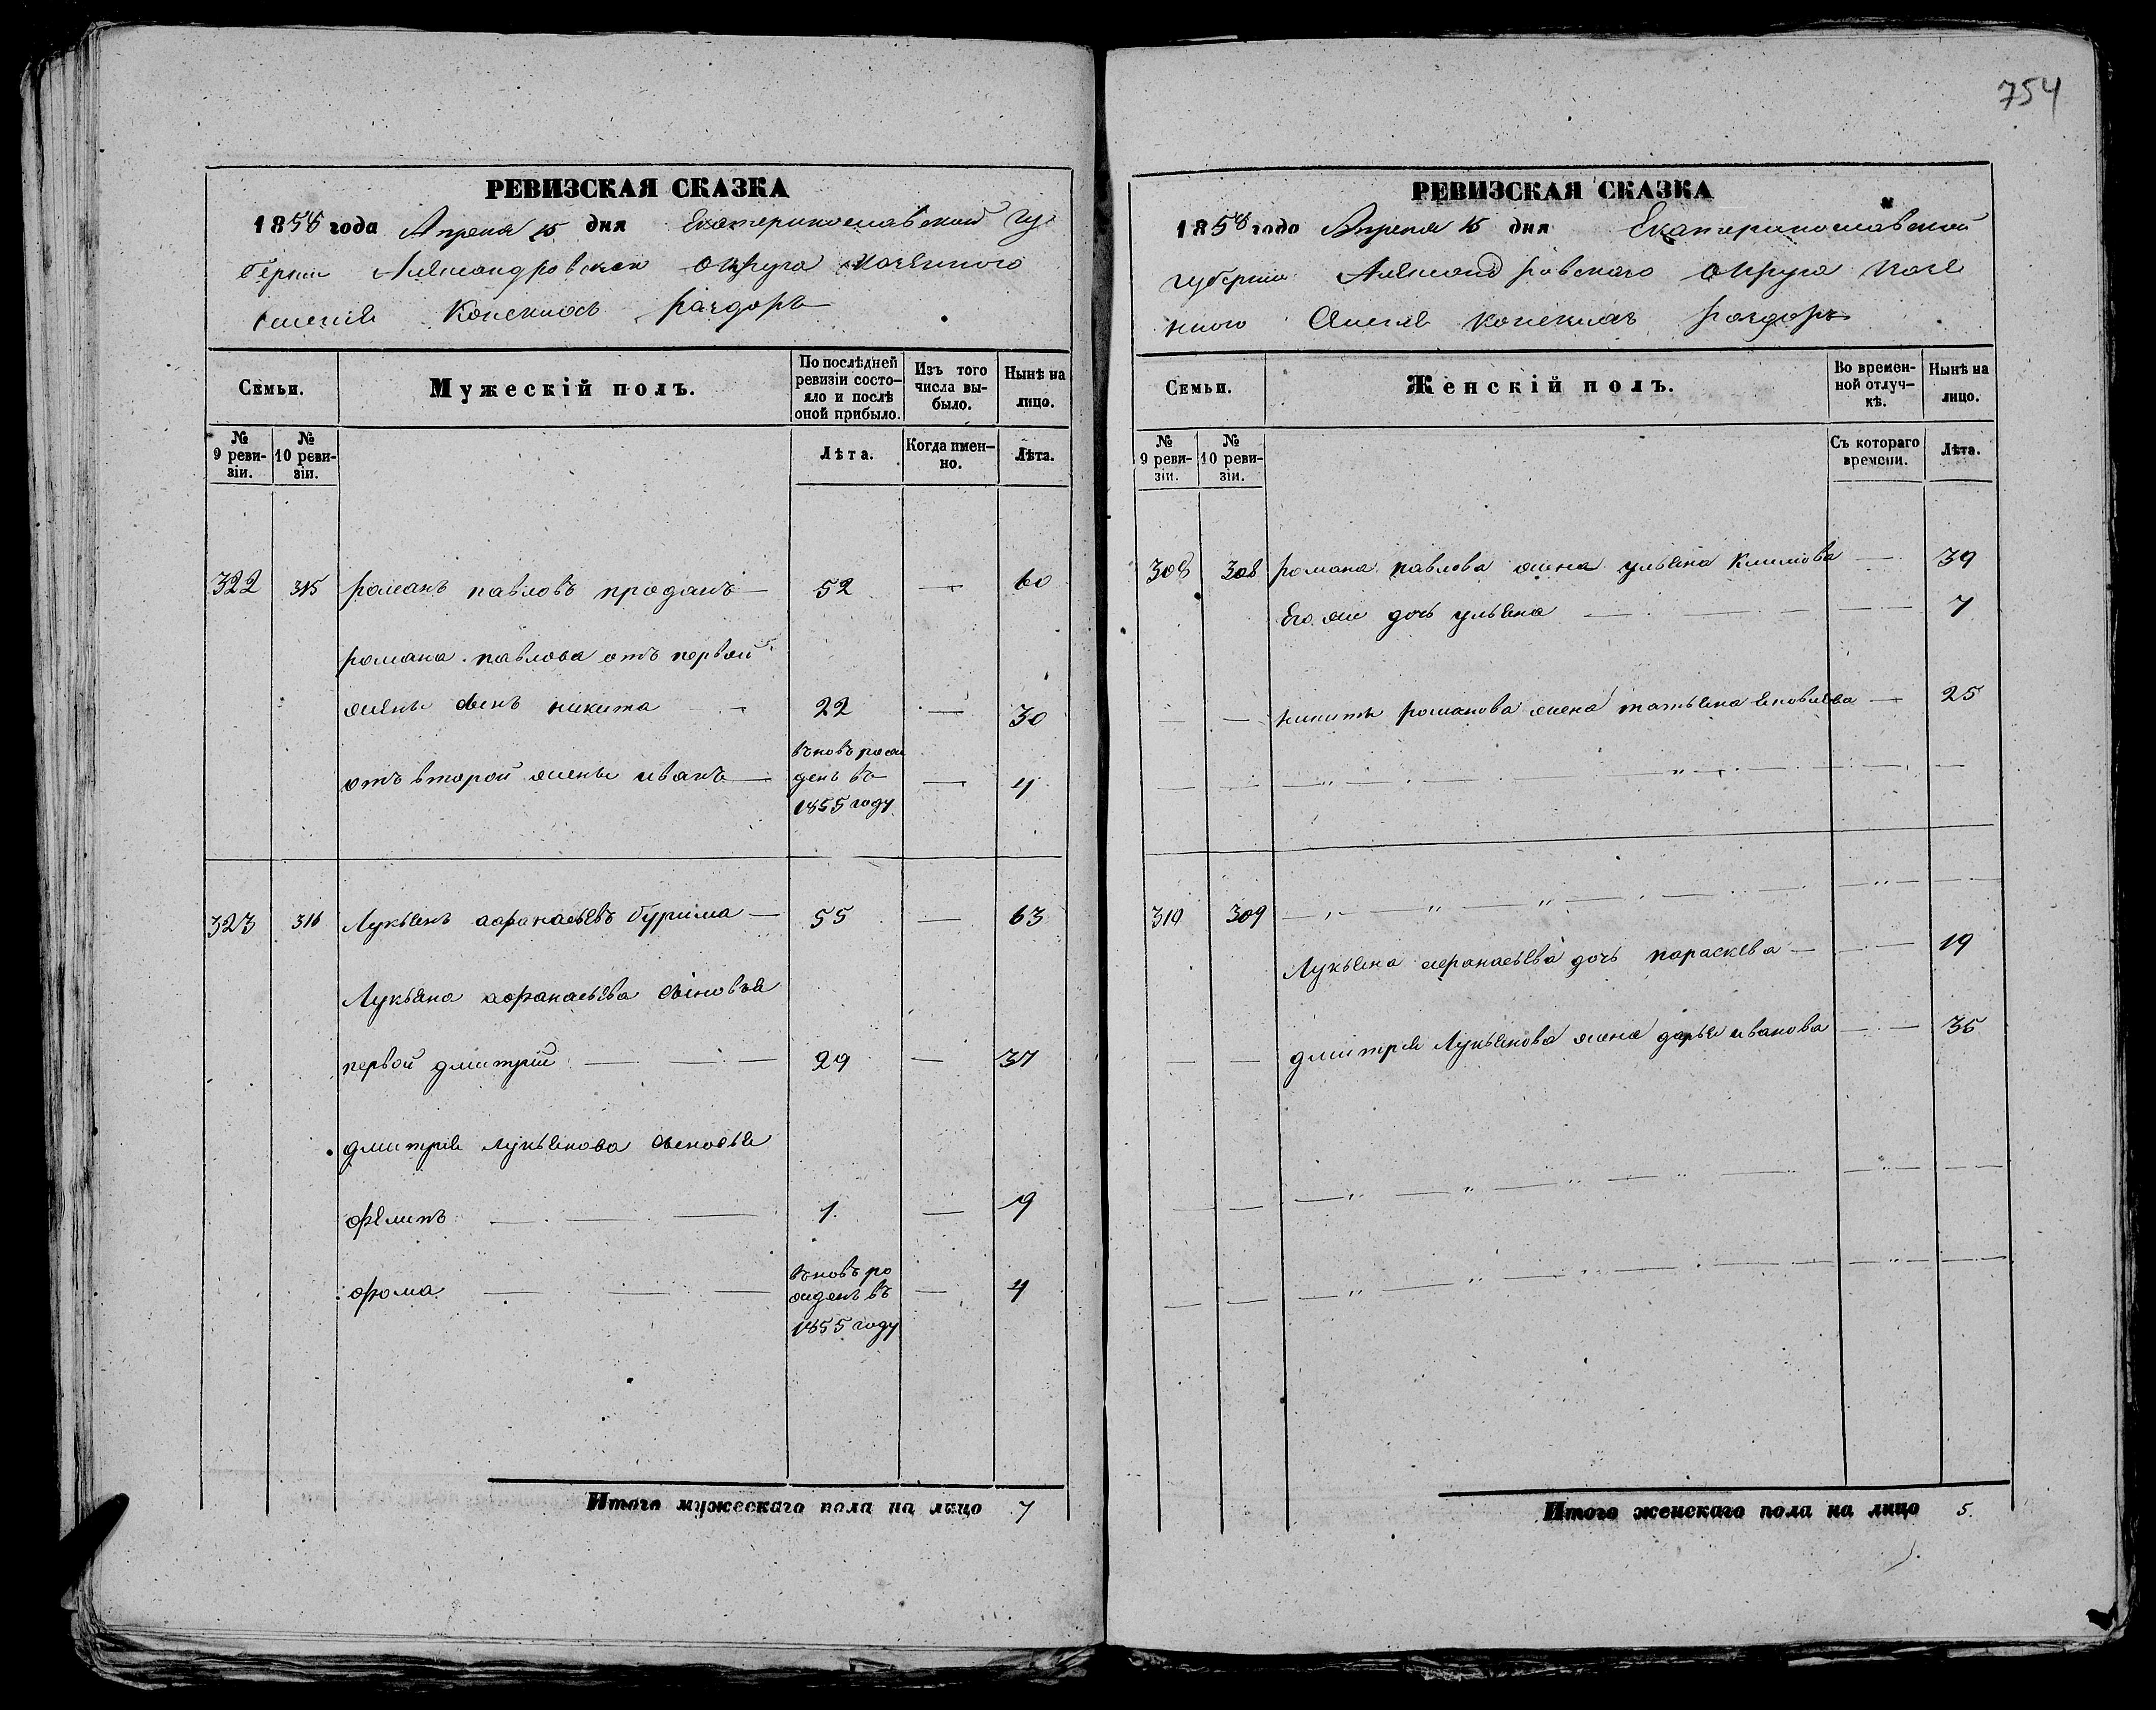 754
РЕВИЗСКАЯ СКАЗКА
1858 года Апреля 15 дня Екатеринославской Гу
берніи Александровскаго округа казенного
селенія Конскихъ раздоръ
Семьи.
Мужескій полъ.
По послѣдней ревизіи состо-
яло и послѣ оной прибыло.
Изъ того числа вы-
было.
Нынѣ на лицо.
№ 9 реви-
зіи.
№ 10 реви-
зіи.
Лѣта.
Когда имен-
но.
Лѣта.
322 315 романъ павловъ проданъ — 52 — 60
романа павлова отъ первой
жены сынъ никита — 22 — 30
отъ второй жены иванъ — вновь рож
денъ въ — 4
1855 году
323 316 Лукьянъ афанасьевъ бурима — 55 — 63
Лукьяна афанасьева сыновья
первой дмитрий — 29 — 37
дмитрія лукьянова сыновья
филипъ — 1 — 9
фома — вновь ро
жденъ въ — 4
1855 году
Итого мужескаго пола на лицо 7
РЕВИЗСКАЯ СКАЗКА
1858 года Апреля 15 дня Екатеринославской
губерніи Александровскаго округа казе
нного Селенія конскихъ раздоръ
Семьи.
Женскій полъ.
Во времен-
ной отлуч-
кѣ.
Нынѣ на лицо.
№ 9 реви-
зіи.
№ 10 реви-
зіи.
Съ котораго времени.
Лѣта.
308 308 романа павлова жена ульяна климова — 39
Его же дочь ульяна — 7
— — никиты романова жена татьяна яковлева — 25
310 309
Лукьяна афанасьева дочь параскева — 19
— — дмитрія Лукьянова жена дарья иванова — 35
Итого женскаго пола на лицо 5.